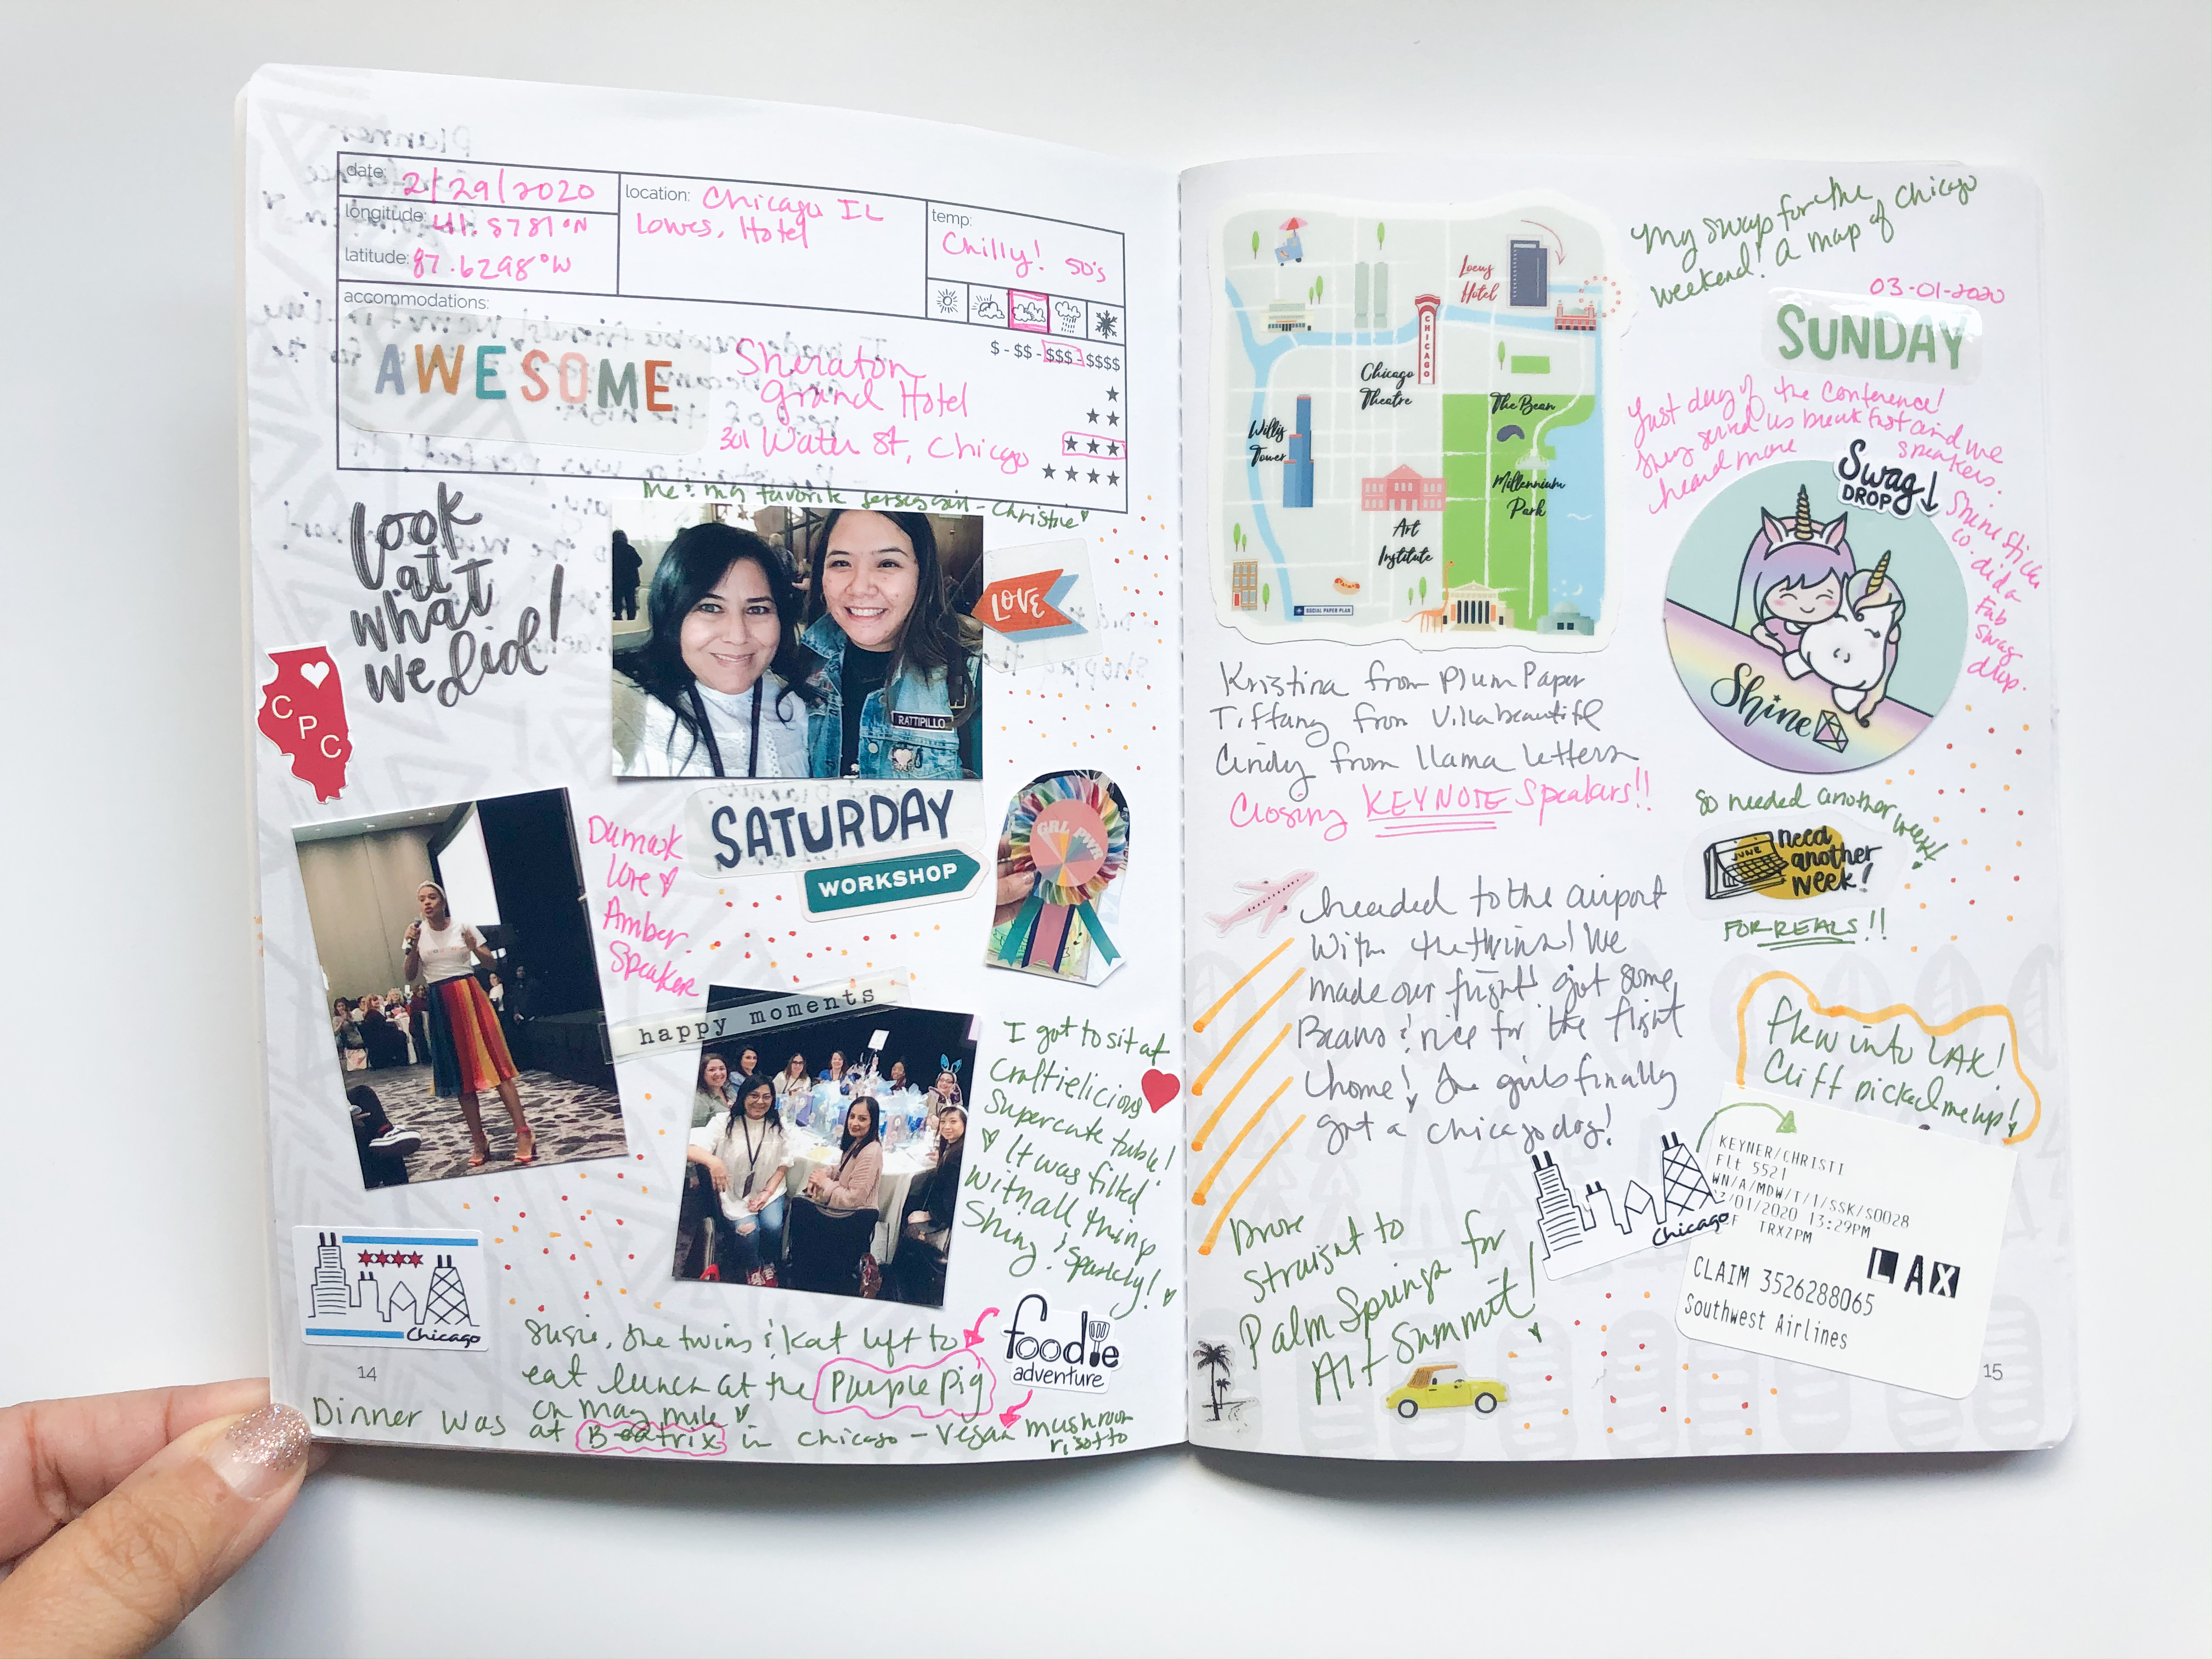 date: 2/29/2020
longitude: 41.8781°N
latitude: 87.6298°W
location: Chicago IL
Lowes, Hotel
temp:
Chilly! 50's
accommodations:
AWESOME
Sheraton
Grand Hotel
301 Water St, Chicago
$ - $$ - $$$ - $$$$
★
★★
★★★
★★★★
look
at
what
we did!
Me & my favorite Jersey girl - Christie
LOVE
RATTIPILLO
C
P
C
SATURDAY
WORKSHOP
GRL PWR
Damask
Love
Amber.
Speaker
happy moments
I got to sit at
Craftielicious
Supercute table!
It was filled
with all things
Shiny & Sparkly!
Chicago
Susie, the twins & Kat left to
eat lunch at the Purple Pig
on mag mile
foodie
adventure
Dinner was at Beatrix in Chicago - Vegan mushroom
risotto
14
Locus
Hotel
CHICAGO
Chicago
Theatre
The Bean
Willis
Tower
Millennium
Park
Art
Institute
SOCIAL PAPER PLAN
My swap for the
weekend! A map of Chicago
03-01-2020
SUNDAY
Last day of the conference!
They served us breakfast and we
heard more speakers.
Swag
DROP
Shine Sticker
Co. did a
Fab
Swag
drop.
Shine
Kristina from Plum Paper
Tiffany from Villabeautiful
Cindy from Llama Letters
Closing KEYNOTE Speakers!!
So needed another week!
JUNE
need
another
week!
FOR REALS!!
headed to the airport
with the twins! We
made our flight! got some
Beans & rice for the flight
home! The girls finally
got a Chicago dog!
flew into LAX!
Cliff picked me up!
Chicago
KEYNER/CHRISTI
Flt 5521
WN/A/MDW/T/1/SSK/S0028
/01/2020 13:29PM
TRXZPM
LAX
CLAIM 3526288065
Southwest Airlines
Drove
Straight to
Palm Springs for
Alt Summit!
15